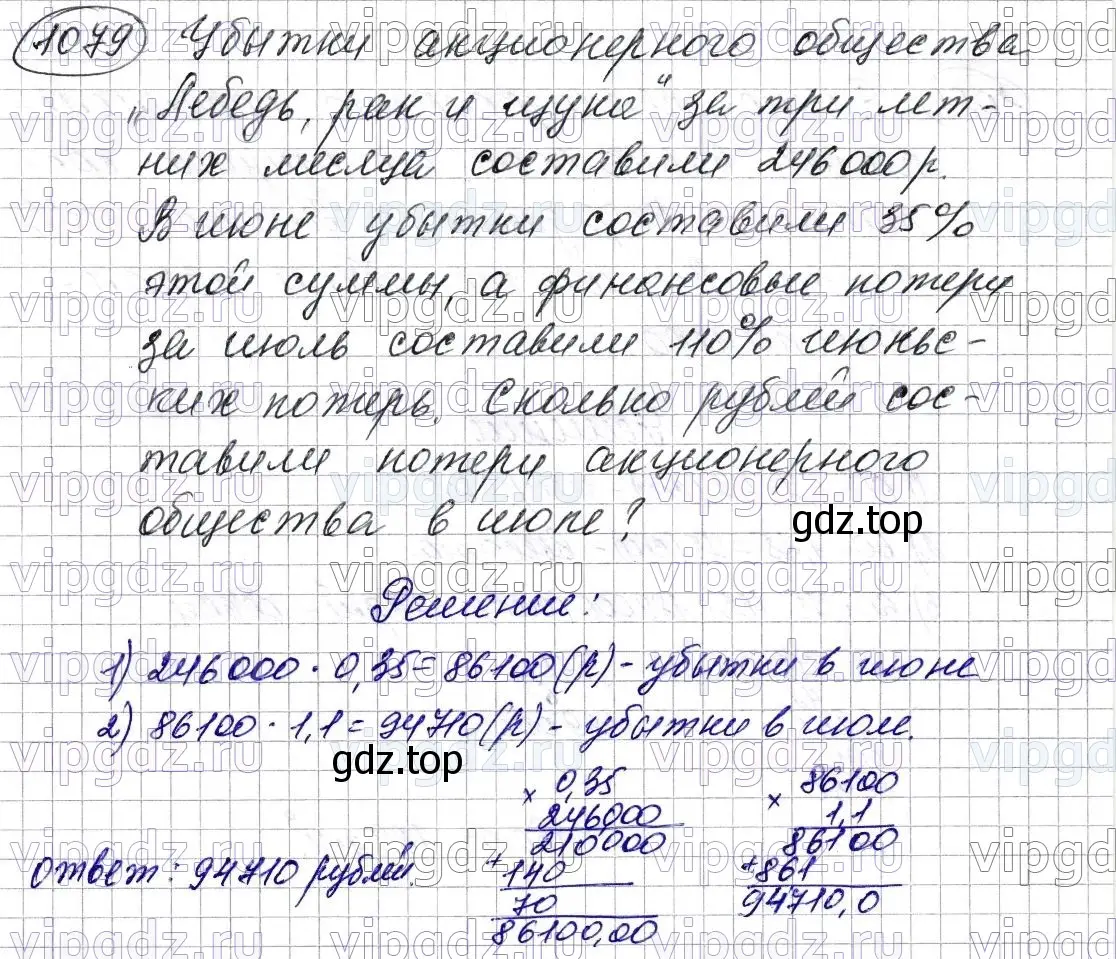 1079 Убытки акционерного общества
„Лебедь, рак и щука" за три лет-
них месяца составили 246000 р.
В июне убытки составили 35%
этой суммы, а финансовые потери
за июль составили 110% июньс-
ких потерь. Сколько рублей сос-
тавили потери акционерного
общества в июле?
gdz.top
Решение:
1) 246000 · 0,35 = 86100 (р) - убытки в июне
2) 86100 · 1,1 = 94710 (р) - убытки в июле.
gdz.top
× 0,35
246000
210000
+ 140
70
86100,00
× 86100
1,1
86100
+ 861
94710,0
ответ: 94710 рублей.
vipgdz.ru